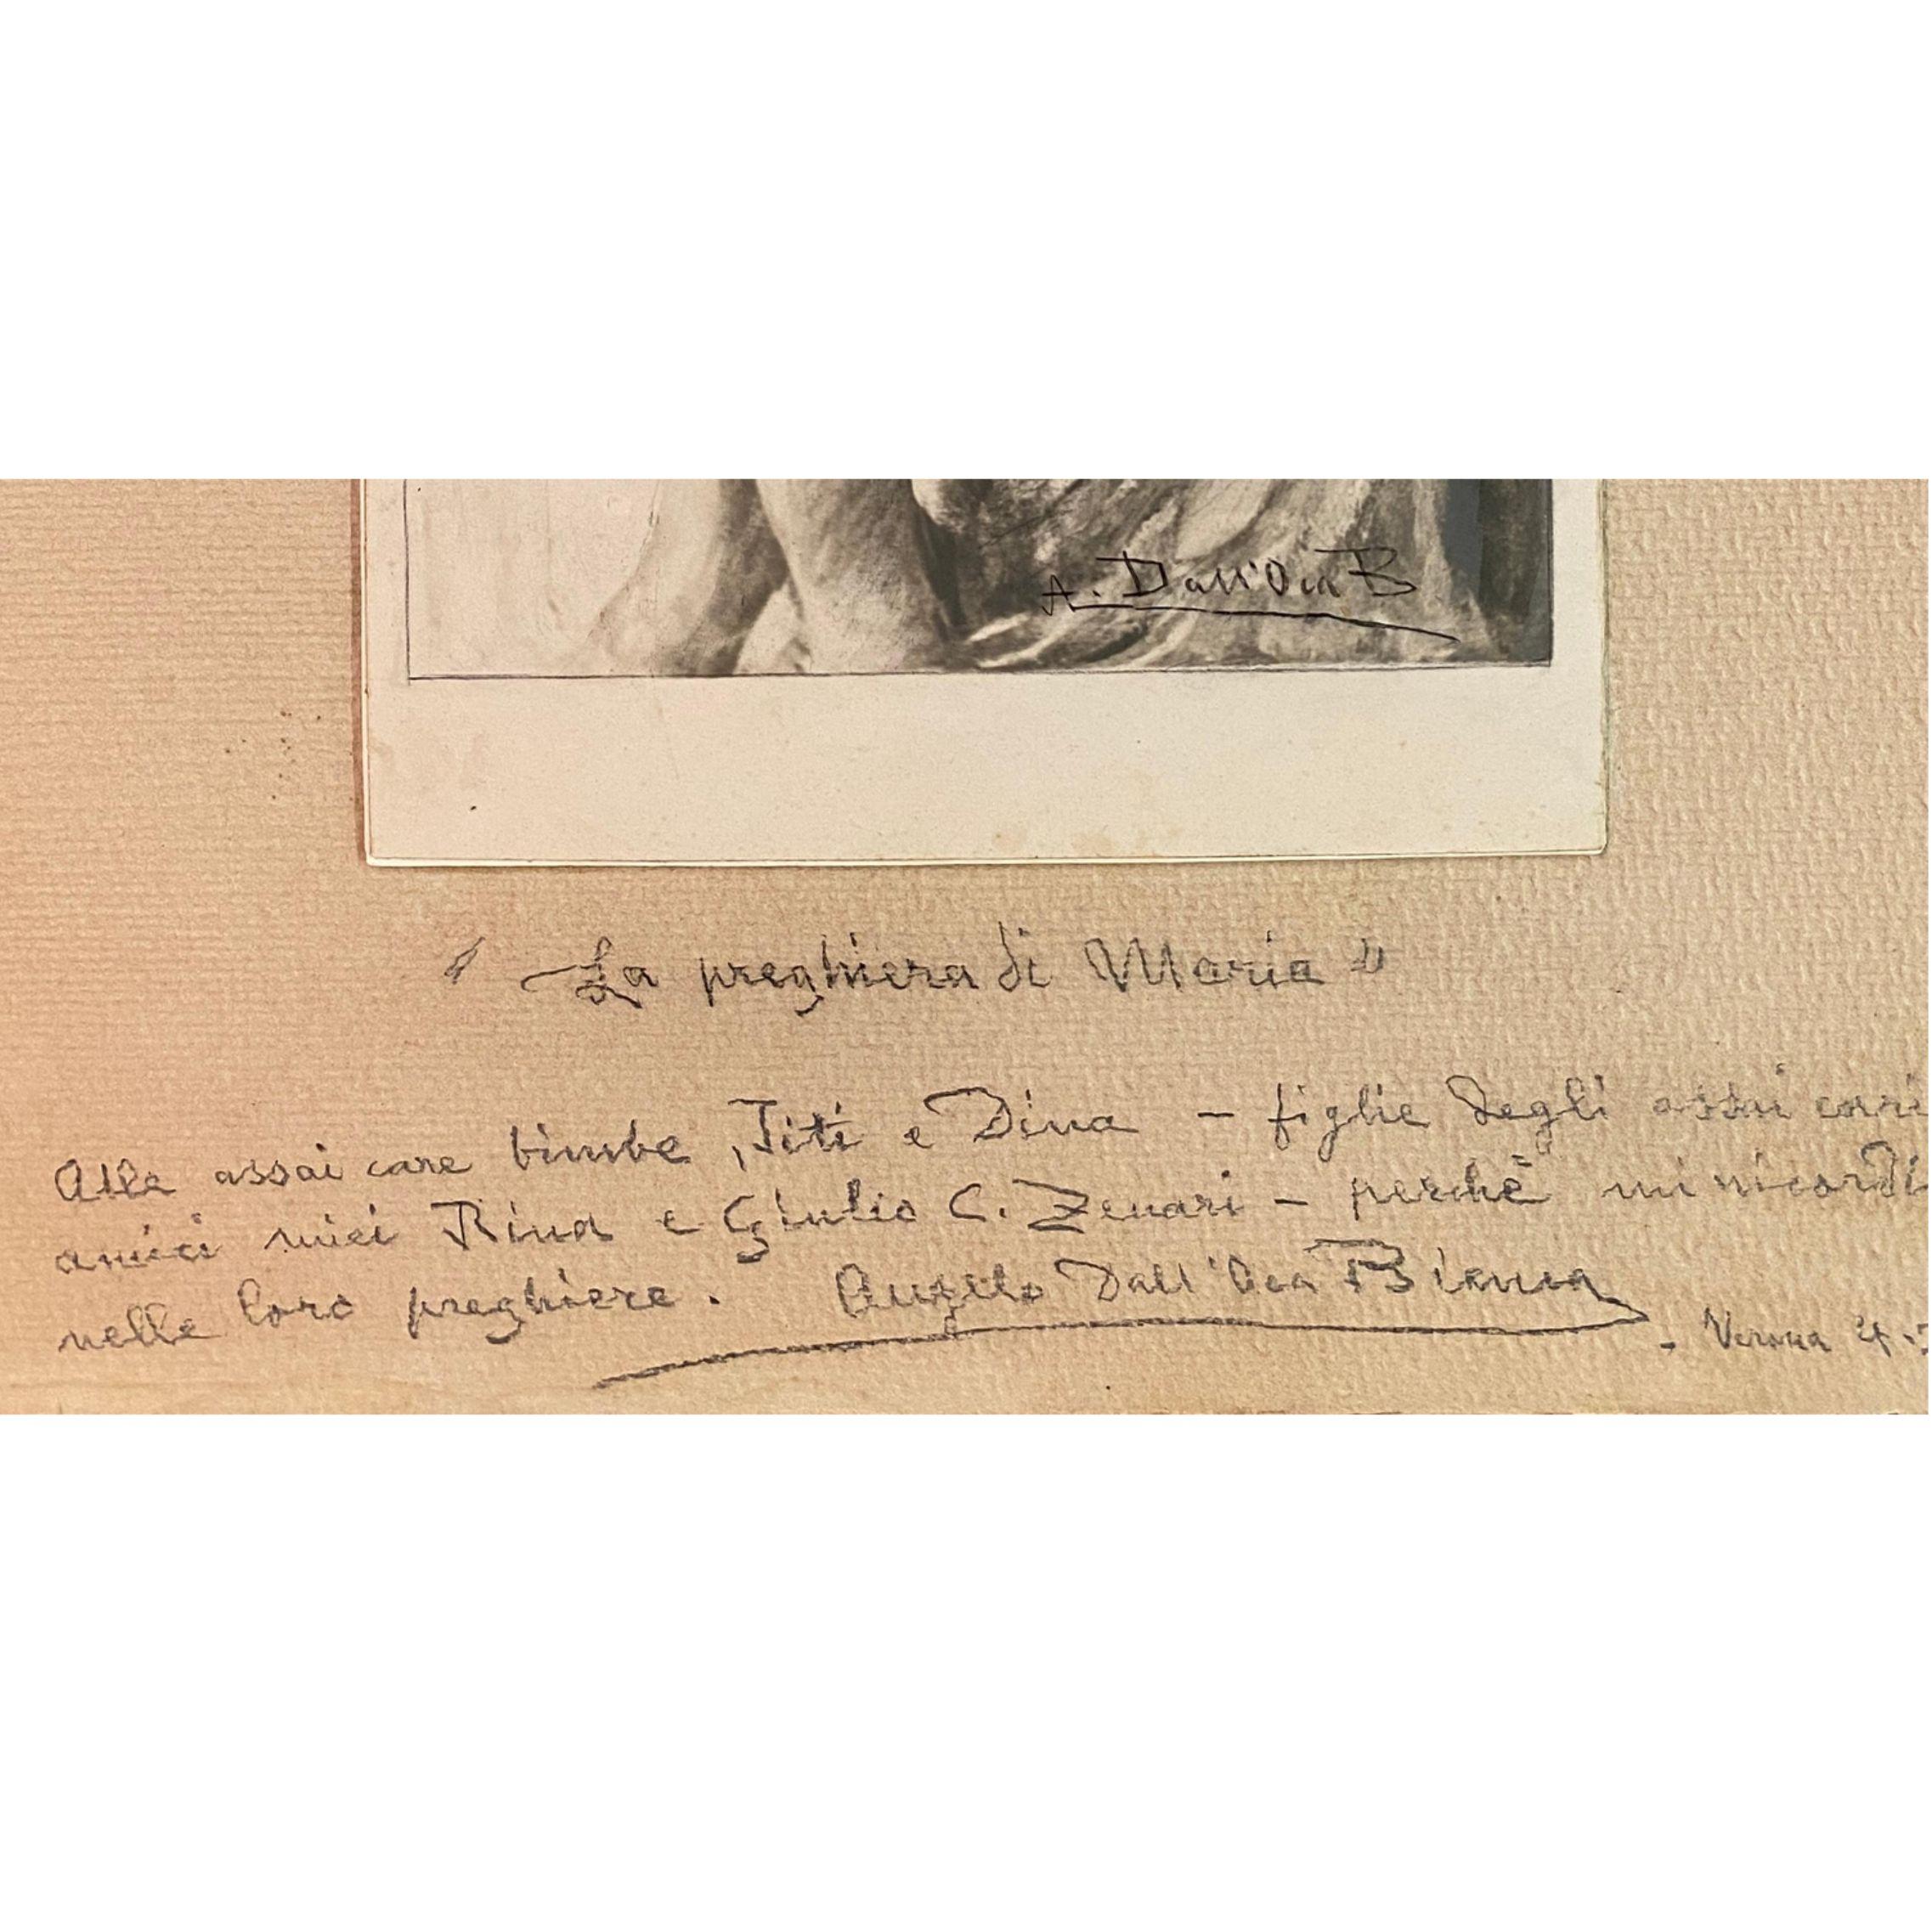 A. Dall'Oca B
"La preghiera di Maria"
Alle assai care bimbe, Titi e Dina – figlie degli assai cari
amici miei Rina e Giulio C. Zenari – perchè mi ricordi
nelle loro preghiere. Angelo Dall'Oca Bianca
- Verona 4.